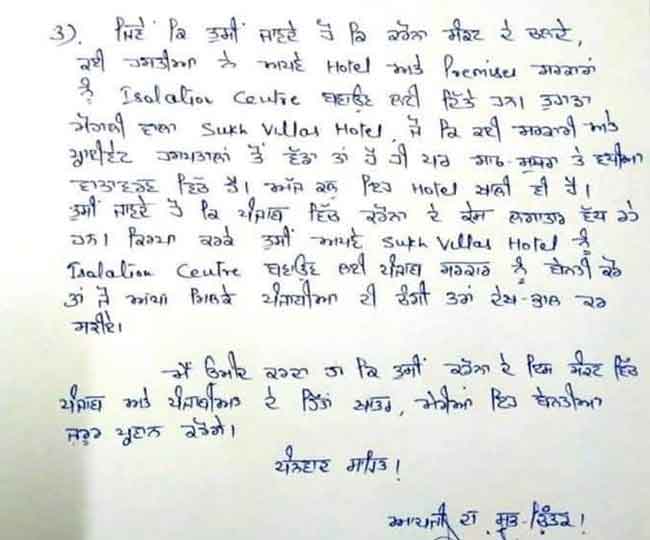 3). ਜਿਵੇਂ ਕਿ ਤੁਸੀਂ ਜਾਣਦੇ ਹੋ ਕਿ ਕਰੋਨਾ ਸੰਕਟ ਦੇ ਚਲਦੇ,
ਕਈ ਹਸਤੀਆ ਨੇ ਆਪਣੇ Hotel ਅਤੇ Premises ਸਰਕਾਰਾਂ
ਨੂੰ Isolation Centre ਬਣਾਉਣ ਲਈ ਦਿੱਤੇ ਹਨ। ਤੁਹਾਡਾ
ਵਾਲਾ Sukh Villas Hotel, ਜੋ ਕਿ ਕਈ ਸਰਕਾਰੀ ਅਤੇ
ਪ੍ਰਾਈਵੇਟ ਹਸਪਤਾਲਾਂ ਤੋਂ ਵੱਡਾ ਤਾਂ ਹੈ ਹੀ ਪਰ ਸਾਫ-ਸੁਥਰਾ ਤੇ ਵਧੀਆ
ਵਾਤਾਵਰਣ ਵਿੱਚ ਹੈ। ਅੱਜ ਕਲ ਇਹ Hotel ਖਾਲੀ ਵੀ ਹੈ।
ਤੁਸੀਂ ਜਾਣਦੇ ਹੋ ਕਿ ਪੰਜਾਬ ਵਿੱਚ ਕਰੋਨਾ ਦੇ ਕੇਸ ਲਗਾਤਾਰ ਵੱਧ ਰਹੇ
ਹਨ। ਕਿਰਪਾ ਕਰਕੇ ਤੁਸੀਂ ਆਪਣੇ Sukh Villas Hotel ਨੂੰ
Isolation Centre ਬਣਾਉਣ ਲਈ ਪੰਜਾਬ ਸਰਕਾਰ ਨੂੰ ਬੇਨਤੀ ਕਰੋ
ਤਾਂ ਜੋ ਆਪਾਂ ਮਿਲਕੇ ਪੰਜਾਬੀਆ ਦੀ ਚੰਗੀ ਤਰਾਂ ਦੇਖ-ਭਾਲ ਕਰ
ਸਕੀਏ।
ਮੈਂ ਉਮੀਦ ਕਰਦਾ ਹਾਂ ਕਿ ਤੁਸੀਂ ਕਰੋਨਾ ਦੇ ਇਸ ਸੰਕਟ ਵਿੱਚ
ਪੰਜਾਬ ਅਤੇ ਪੰਜਾਬੀਅਤ ਦੇ ਹਿੱਤਾਂ ਖਾਤਰ, ਮੇਰੀਆਂ ਇਹ ਬੇਨਤੀਆ
ਜ਼ਰੂਰ ਪ੍ਰਵਾਨ ਕਰੋਗੇ।
ਧੰਨਵਾਦ ਸਹਿਤ!
ਆਪਜੀ ਦਾ ਸ਼ੁਭ-ਚਿੰਤਕ!